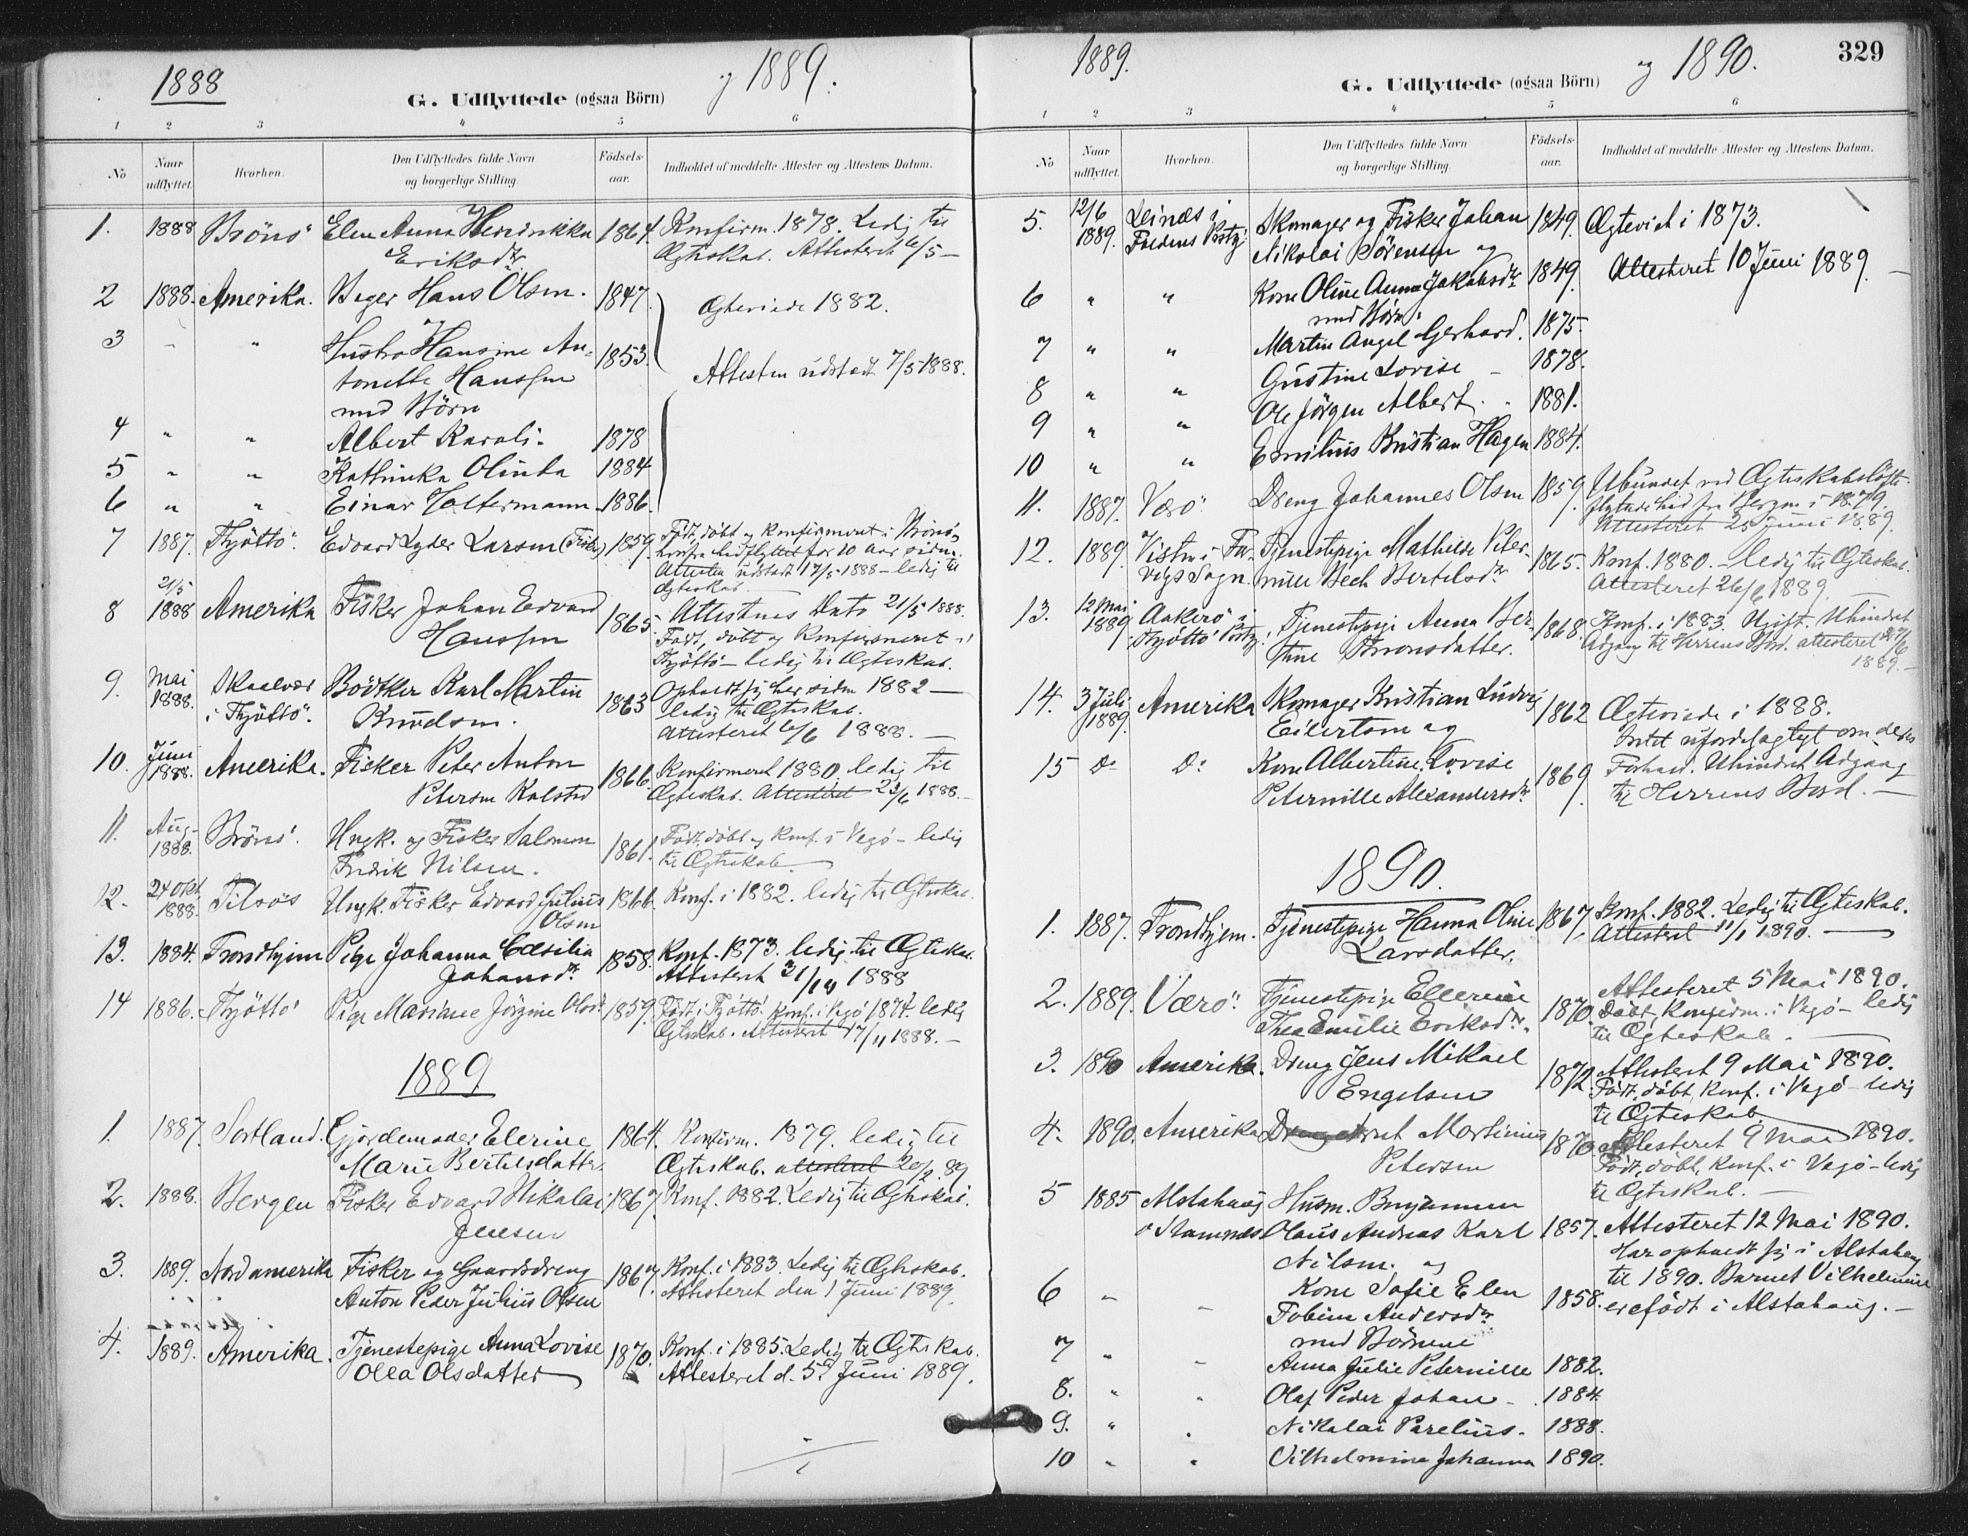 1888
G. Udflyttede (ogsaa Börn)
og 1889.
1 2 3 4 5 6
No
Naar udflyttet.
Hvorhen.
Den Udflyttedes fulde Navn og borgerlige Stilling.
Födsels-aar.
Indholdet af meddelte Attester og Attestens Datum.
1. 1888 Brönö Elen Anna Hendrikka 1864. Konfirm. 1878. Ledig til
Eriksdr Ægteskab. Attesteret 6/5 —
2 1888. Amerika. Hans Olsen. 1847. Ægteviede 1882.
3 – " Hustro Hansine An- 1853. Attesten udstedt 7/5 1888.
tonette Hanssen
med Börn
4 " " Albert Karoli. 1878
5 " " Kathinka Olinda 1884
6 " " Einar Holtermann 1886.
7 1887. Thjöttö. Edvard Lyder Larsen (Fisker) 1859. Födt, döbt og konfirmeret i Brönö,
hvorfra hidflyttet for 10 Aar siden.
Attesten udstedt 17/5 1888 – ledig til
Ægteskab.
21/5
8 1888 Amerika Fisker Johan Edvard 1865. Attestens Dato 21/5 1888.
Hanssen Födt, döbt og Konfirmeret i
Thjöttö – ledig til Ægteskab.
9. Mai 1888. Skaalvær Bödker Karl Martin 1863 Opholdt sig her siden 1882 —
i Thjöttö. Knudsen. ledig til Ægteskab.
Attesteret 6/6 1888. —
10. Juni 1888. Amerika. Fisker Peter Anton 1866. Konfirmeret 1880. ledig til
Petersen Kalstad Ægteskab. Attesteret 23/6 1888. —
11. Aug. 1888. Brönö. Ungk. og Fisker Salomon 1861. Födt, döbt og konf. i Vegö – ledig
Fredrik Nilsen. til Ægteskab
12. 24 Okt. 1888. Tilrös Ungk. Fisker Edvard Julius 1866. Konf. i 1882. ledig til Ægteskab.
Olsen
13. 1884. Trondhjem Pige Johanna Cæsilia 1858. Konf. 1873. ledig til Ægteskab.
Johansdr Attesteret 21/10 1888
14 1886. Thjöttö Pige Mariane Jörgine Olsdr 1859. Födt i Tjöttö. konf. i Vegö 1874. ledig
Ægteskab. Attesteret 17/11 1888. —
1889
1. 1887. Sortland. Gjordemoder Elerine 1864. Konfirm. 1879. ledig til
Marie Bertelsdatter. Ægteskab. attesteret 20/2. 89
2. 1888. Bergen Fisker Edvard Nikolai 1867. Konf. 1882. Ledig til Ægteskab.
Jensen
3. 1889. Nordamerika Fisker og Gaardsdreng 1867. Konf. i 1883. Ledig til Ægteskab.
Anton Peder Julius Olsen Attesteret den 1 Juni 1889.
4. 1889. Amerika. Tjenestepige Anna Lovise 1870. Konf. i 1885. Ledig til Ægteskab.
Olea Olsdatter Attesteret d. 5 Juni 1889.
1889.
G. Udflyttede (ogsaa Börn)
og 1890.
329
1 2 3 4 5 6
No
Naar udflyttet.
Hvorhen.
Den Udflyttedes fulde Navn og borgerlige Stilling.
Födsels-aar.
Indholdet af meddelte Attester og Attestens Datum.
5. 12/6 1889. Leines i Skomager og Fisker Johan 1849. Ægteviet i 1873.
Nikolai Sörensen og Attesteret 10 Juni 1889. —
6 " " Kone Oline Anna Jakobsdr 1849.
med Börn:
7 " " Martin Angel Gerhard. 1875.
8 " " Gustine Lovise – 1878.
9 " " Ole Jörgen Albert. 1881.
10 " " Emilius Kristian Hagen 1884.
11. 1887. Værö Dreng Johannes Olsen 1859. Ubundet ved Ægteskabslöfte
flyttede hid fra Bergen i 1879.
Attesteret 25 Juni 1889.
12. 1889. Visten i Tjenestepige Mathilde Peter- 1865. Konf. 1880. – ledig til Ægteskab.
vigs Sogn. nille Bech Bertelsdr Attesteret 26/6 1889.
13. 12 Mai 1889 Aakerö i Tjenestepige Anna Ber- 1868. Konf. i 1883. Ugift. Uhindret
Thjöttö tine Aronsdatter. Adgang til Herrens Bord. attesteret
1889. —
14. 3 Juli 1889. Amerika Skomager Kristian Ludvig 1862 Ægteviede i 1888.
Eilertsen og Intet ufordelagtigt om deres
15 Do Do Kone Albertine Lovise 1869 Forhold. Uhindret Adgang
Peternille Alexandersdr til Herrens Bord. —
1890.
1. 1887. Trondhjem. Tjenestepige Hanna Oline 1867. Konf. 1882. Ledig til Ægteskab.
Larsdatter. Attesteret 11/1 1890. —
2. 1889. Værö. Tjenestepige Ellerine 1870. Attesteret 5 Mai 1890.
Thea Emilie Eriksdr. Döbt, Konfirm. i Vegö – ledig
til Ægteskab.
3. 1890 Amerika. Dreng Jens Mikael 1872. Attesteret 9 Mai 1890.
Engelsen Födt, döbt, konf. i Vegö – ledig
til Ægteskab
4. 1890. Amerika Martinius 1870 Attesteret 9 Mai 1890.
Petersen Födt, döbt, konf. i Vegö – ledig
til Ægteskab. —
5 1885 Alstahaug Husm. Benjamin
o Stamnes Olaus Andreas Karl 1857. Attesteret 12 Mai 1890.
Nilsen. og Har opholdt sig i Alstahaug
6 – – Kone Sofie Elen 1858. til 1890. Barnet Vilhelmine
Tobine Andersdr er födt i Alstahaug. —
med Börnene
7 " – Anna Julie Peternille 1882.
8. " " Olaf Peder Johan – 1884.
9. " " Nikolai Parelius. 1888.
10 " " Vilhelmine Johanna 1890.